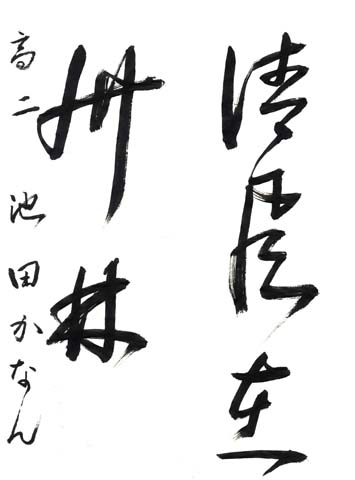 清在
竹林
高二 池田かなん